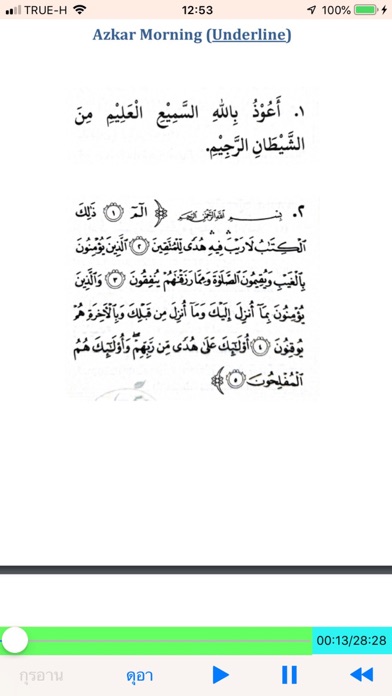 TRUE-H 12:53 100%
Azkar Morning (Underline)
١. أَعُوْذُ بِاللهِ السَّمِيْعِ الْعَلِيْمِ مِنَ
الشَّيْطَانِ الرَّجِيْمِ.
٢. بِسْمِ اللَّهِ الرَّحْمَٰنِ الرَّحِيمِ ﴿ الٓمٓ ۝١ ذَٰلِكَ
ٱلْكِتَٰبُ لَا رَيْبَ ۛ فِيهِ ۛ هُدًى لِّلْمُتَّقِينَ ۝٢ ٱلَّذِينَ يُؤْمِنُونَ
بِٱلْغَيْبِ وَيُقِيمُونَ ٱلصَّلَوٰةَ وَمِمَّا رَزَقْنَٰهُمْ يُنفِقُونَ ۝٣ وَٱلَّذِينَ
يُؤْمِنُونَ بِمَآ أُنزِلَ إِلَيْكَ وَمَآ أُنزِلَ مِن قَبْلِكَ وَبِٱلْءَاخِرَةِ هُمْ
يُوقِنُونَ ۝٤ أُو۟لَٰٓئِكَ عَلَىٰ هُدًى مِّن رَّبِّهِمْ ۖ وَأُو۟لَٰٓئِكَ هُمُ
ٱلْمُفْلِحُونَ ۝٥ ﴾
00:13/28:28
กุรอาน ดุอา